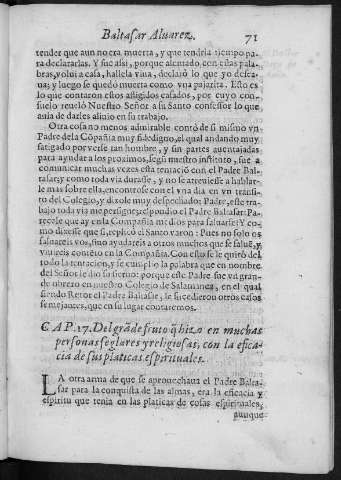 Baltasar Alvarez. 71
tender que aun no era muerta, y que tendria tiempo pa-
ra declararlas. Y fue assi, porque alentado con estas pala-
bras, volui a casa, hallela viua, declarò lo que yo desea-
ua; y luego se quedò muerta como vna pajarita. Esto es
lo que contaron estos afligidos casados, por cuyo con-
suelo reuelò Nuestro Señor a su Santo confessor lo que
auia de darles aliuio en su trabajo.
Otra cosa no menos admirable contò de si mismo vn
Padre de la Cõpañia muy fidedigno, al qual andando muy
fatigado por verse tan hombre, y sin partes auentajadas
para ayudar a los proximos, segũ nuestro instituto, fue a
comunicar muchas vezes esta tentaciõ con el Padre Bal-
tasar; y como toda via durasse, y no se atreuiesse a hablar-
le mas sobre ella, encontrose con el vna dia en vn transi-
to del Colegio, y dixole muy despechado: Padre, este tra-
bajo toda via me persigue; respondio el Padre Baltasar: Pa-
recele que ay en la Compañia medios para saluarse? Y co-
mo dixesse que si, replicò el Santo varon: Pues no solo os
saluareis vos, sino ayudareis a otros muchos que se saluẽ, y
viuireis contẽto en la Compañia. Con esto se le quitò del
todo la tentacion, y se cumplio la palabra que en nombre
del Señor le dio su sieruo: porque este Padre fue vn gran-
de obrero en nuestro Colegio de Salamanca, en el qual
siendo Retor el Padre Baltasar, le sucedieron otros casos
semejantes, que en su lugar contaremos.
CAP. 17. Del grãde fruto q̃ hizo en muchas
personas seglares y religiosas, con la efica-
cia de sus platicas espirituales.
LA otra arma de que se aprouechaua el Padre Balta-
sar para la conquista de las almas, era la eficacia y
espiritu que tenia en las platicas de cosas espirituales,
aunque